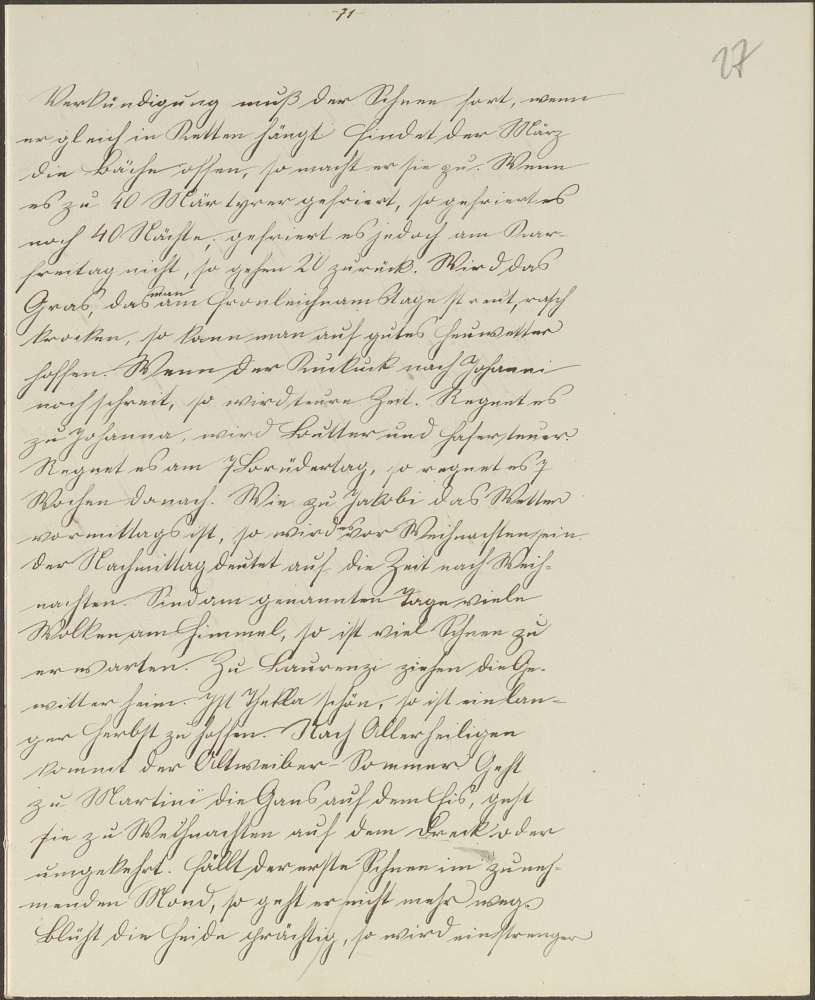 -71-
27
Verkündigung muß der Schnee fort, wenn
er gleich in Ketten hängt findet der März
die Bäche offen, so macht er sie zu. Wenn
es zu 40 Märtyrer gefriert, so gefriert es
noch 40 Nächte; gefriert es jedoch am Kar-
freitag nicht, so gehen 20 zurück. Wird das
Gras, das man am Fronleichnamstage streut, rasch
trocken, so kann man auf gutes Heuwetter
hoffen. Wenn der Kuckuck nach Johanni
noch schreit, so wird teure Zeit. Regnet es
zu Johanna, wird Butter und Hafer teuer.
Regnet es am 7 Brüdertag, so regnet es 7
Wochen danach. Wie zu Jakobi das Wetter
vormittags ist, so wird es vor Weihnachten sein.
der Nachmittag deutet auf die Zeit nach Weih-
nachten. Sind am genannten Tage viele
Wolken am Himmel, so ist viel Schnee zu
erwarten. Zu Laurenzi ziehen die Ge-
witter heim. Ist Thekla schön, so ist ein lan-
ger Herbst zu hoffen. Nach Allerheiligen
kommt der Altweiber-Sommer Geht
zu Martini die Gans auf dem Eis, geht
sie zu Weihnachten auf dem Dreck oder
umgekehrt. Fällt der erste Schnee im zuneh-
menden Mond, so geht er nicht mehr weg.
Blüht die Heide prächtig, so wird ein strenger